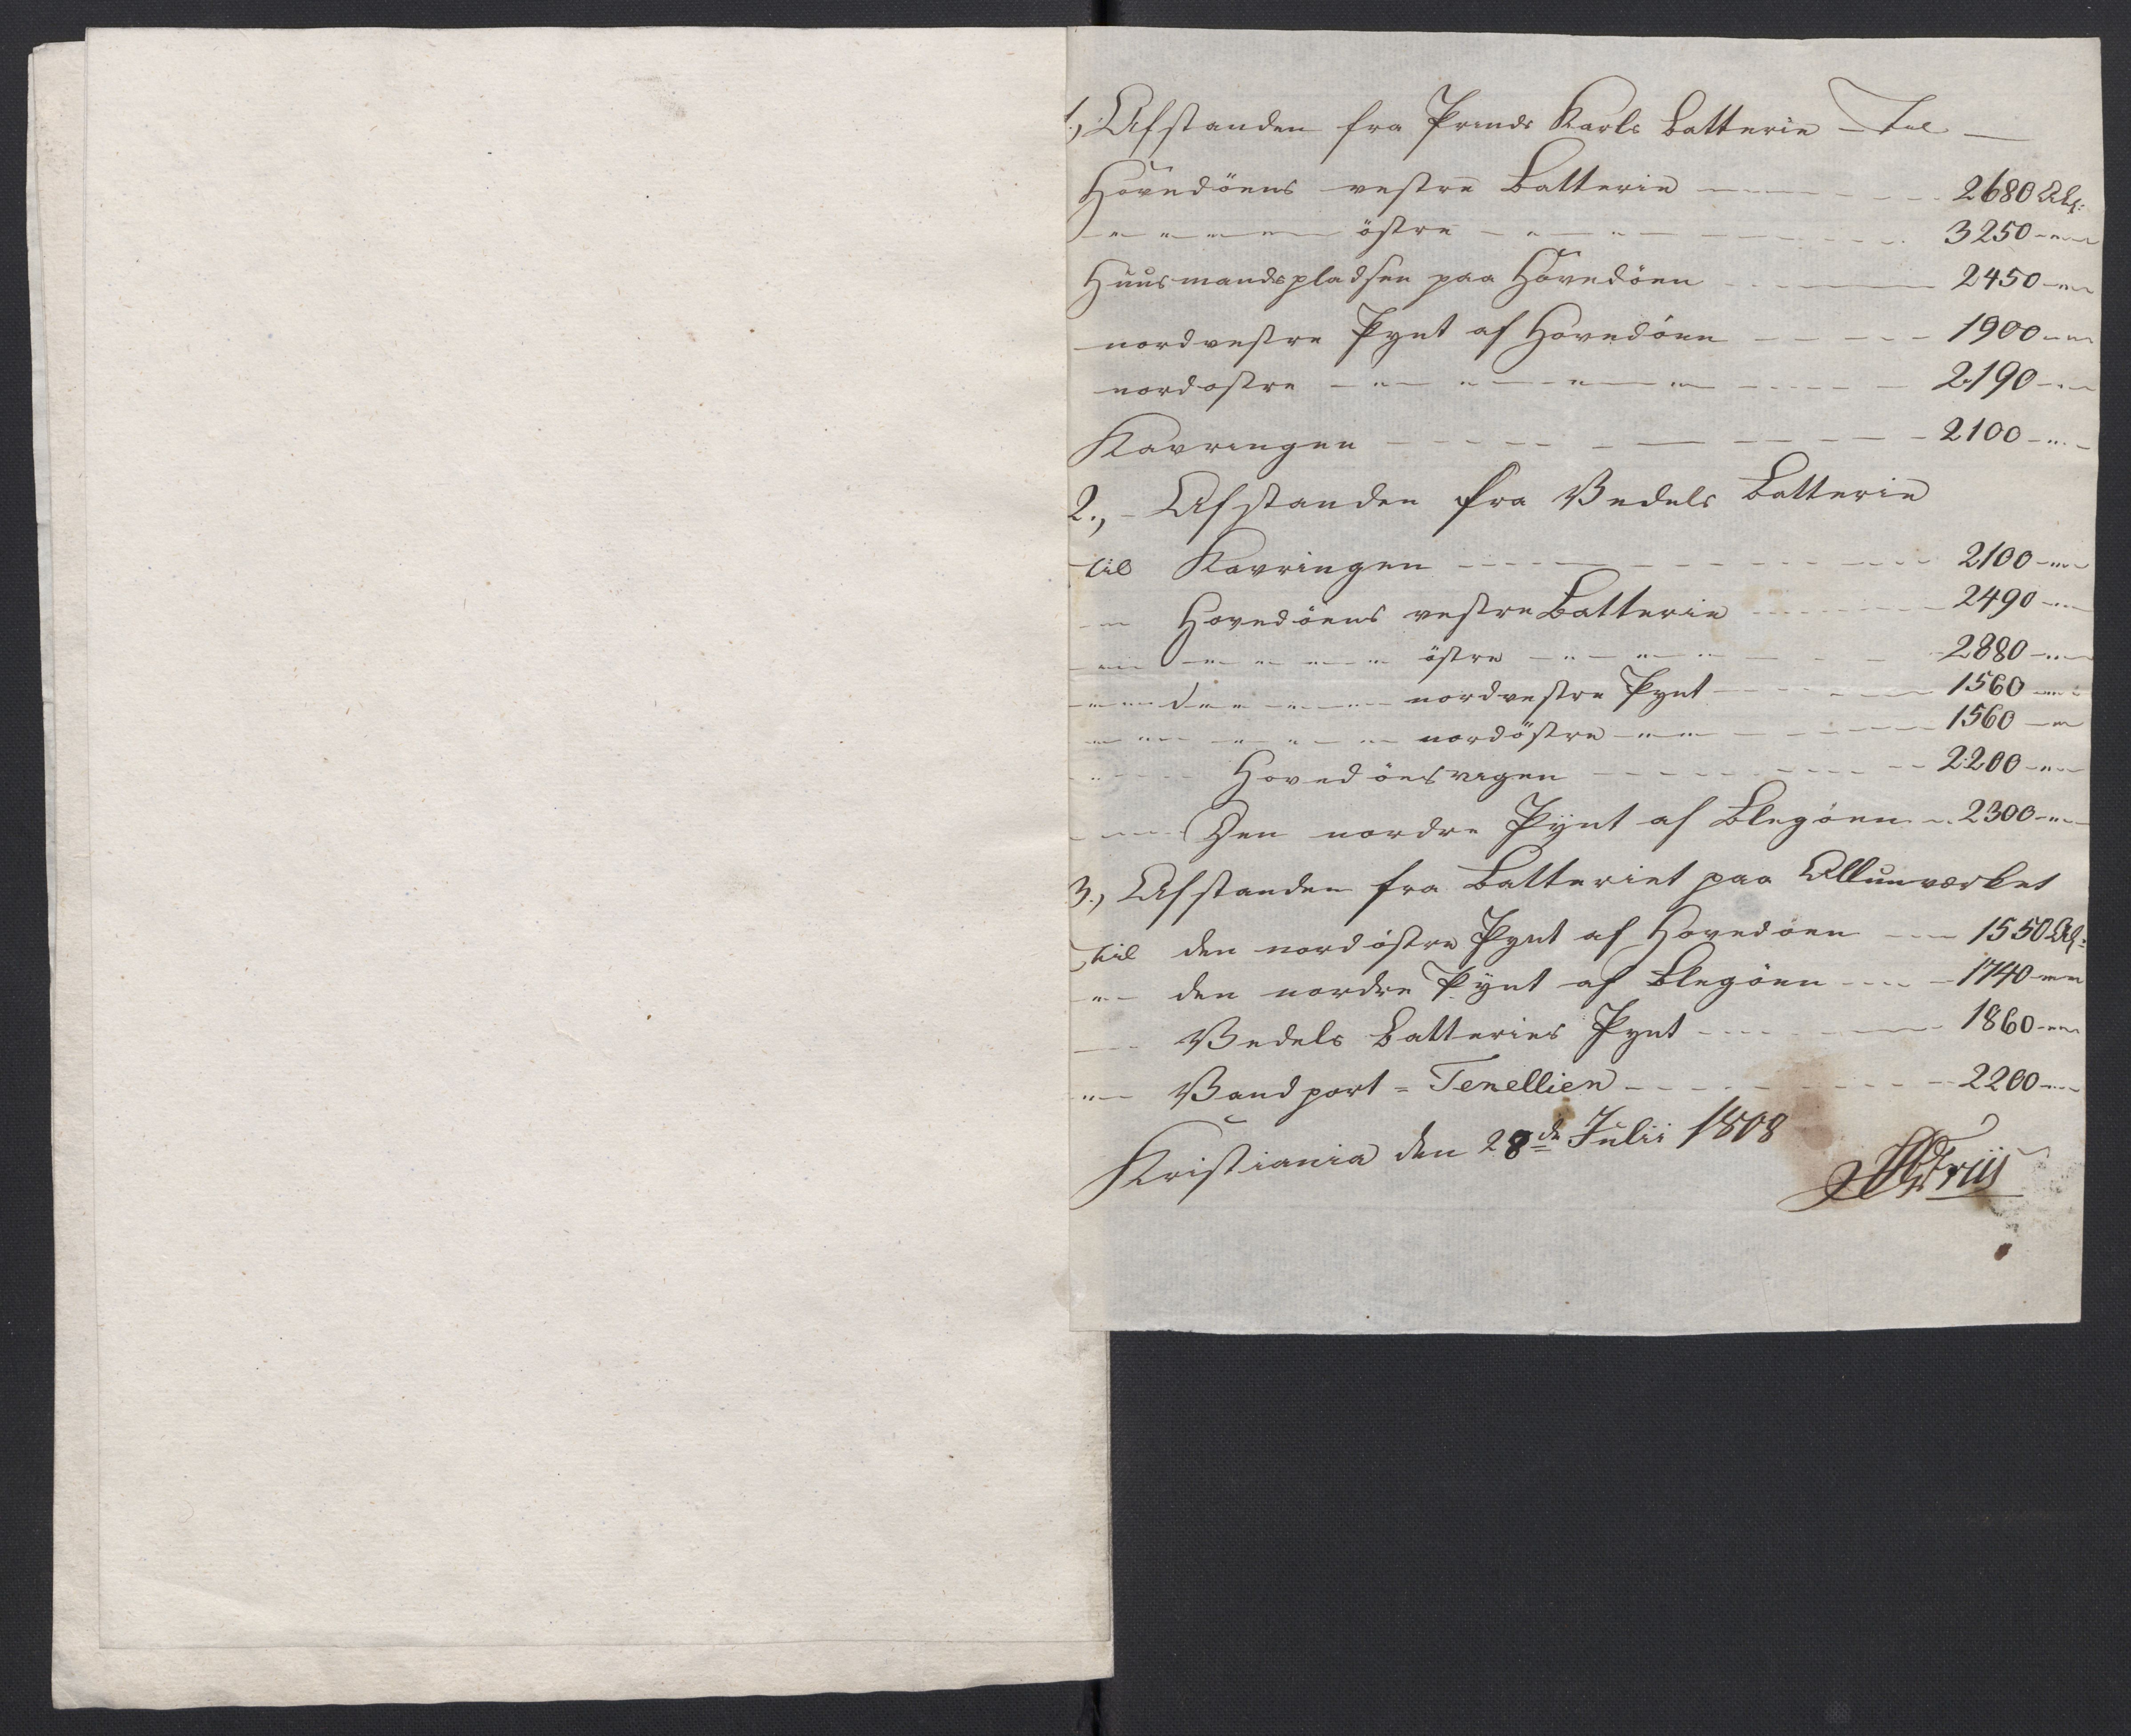 1., Afstanden fra Prinds Karls Batterie – Til –
Hovedöens vestre Batterie – – – 2680 Al:
– " – " – " – östre – " – " – – – 3250 – " –
Huusmandspladsen paa Hovedöen – – – 2450 – " –
nordvestre Pynt af Hovedöen – – – 1900 – " –
nordostre – " – " – " – " – – – 2190 – " –
Kavringen – – – 2100 – " –
2., – Afstanden fra Vedels Batterie
til Kavringen – – – 2100 – " –
– " – Hovedöens vestre Batterie – – – 2490 – " –
– " – – " – " – " – östre – " – " – – – 2880 – " –
– " – " – " – " – nordvestre Pynt – – – 1560 – " –
– " – " – " – " – nordöstre – " – – – 1560 – " –
– " – Hovedöesvigen – – – 2200 – " –
– " – Den nordre Pynt af Blegöen – 2300 – " –
3., Afstanden fra Batteriet paa Allunværket
til den nordöstre Pynt af Hovedöen – – 1550 Al:
– " – den nordre Pynt af Blegöen – – – 1740 – " –
– – Vedels Batteries Pynt – – – 1860 – " –
– " – Vandport = Tenellien – – – 2200 – " –
Kristiania den 28de Julii 1808